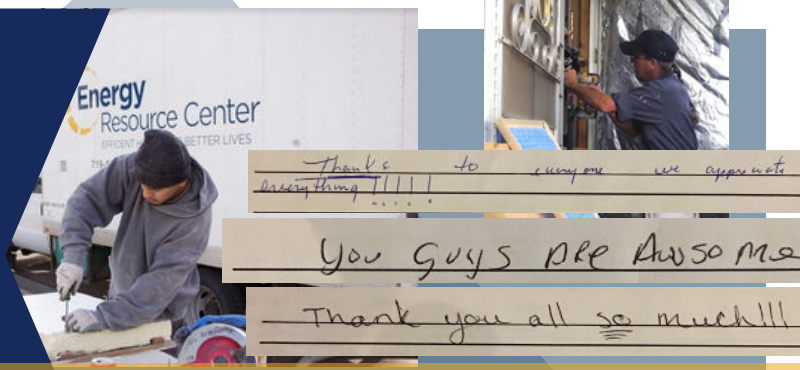 Energy
Resource Center
EFFICIENT BETTER LIVES
Thanks to everyone we appreciate
everything !!!!!
You Guys Are Awsome
Thank you all so much!!!